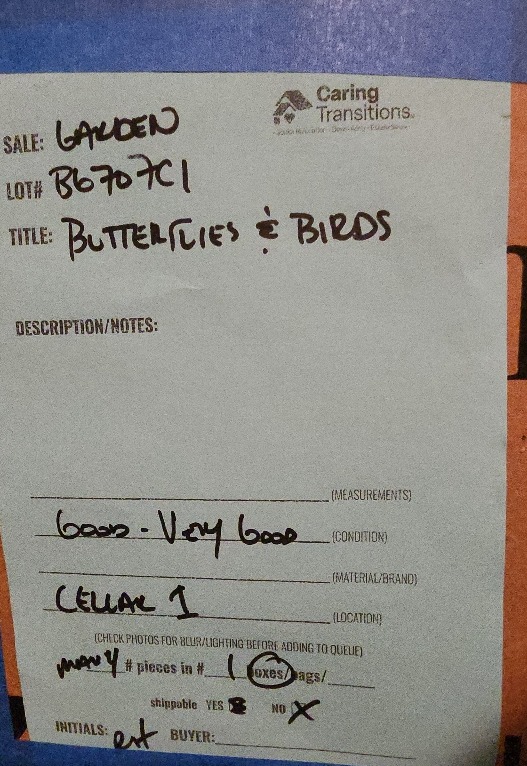 Caring
Transitions.
SALE: GARDEN
LOT# B6707C1
TITLE: BUTTERFLIES & BIRDS
DESCRIPTION/NOTES:
(MEASUREMENTS)
GOOD - VERY GOOD (CONDITION)
(MATERIAL/BRAND)
CELLAR 1 (LOCATION)
(CHECK PHOTOS FOR BLUR/LIGHTING BEFORE ADDING TO QUEUE)
MANY # pieces in # 1 boxes/bags/
shippable YES NO X
INITIALS: BUYER: